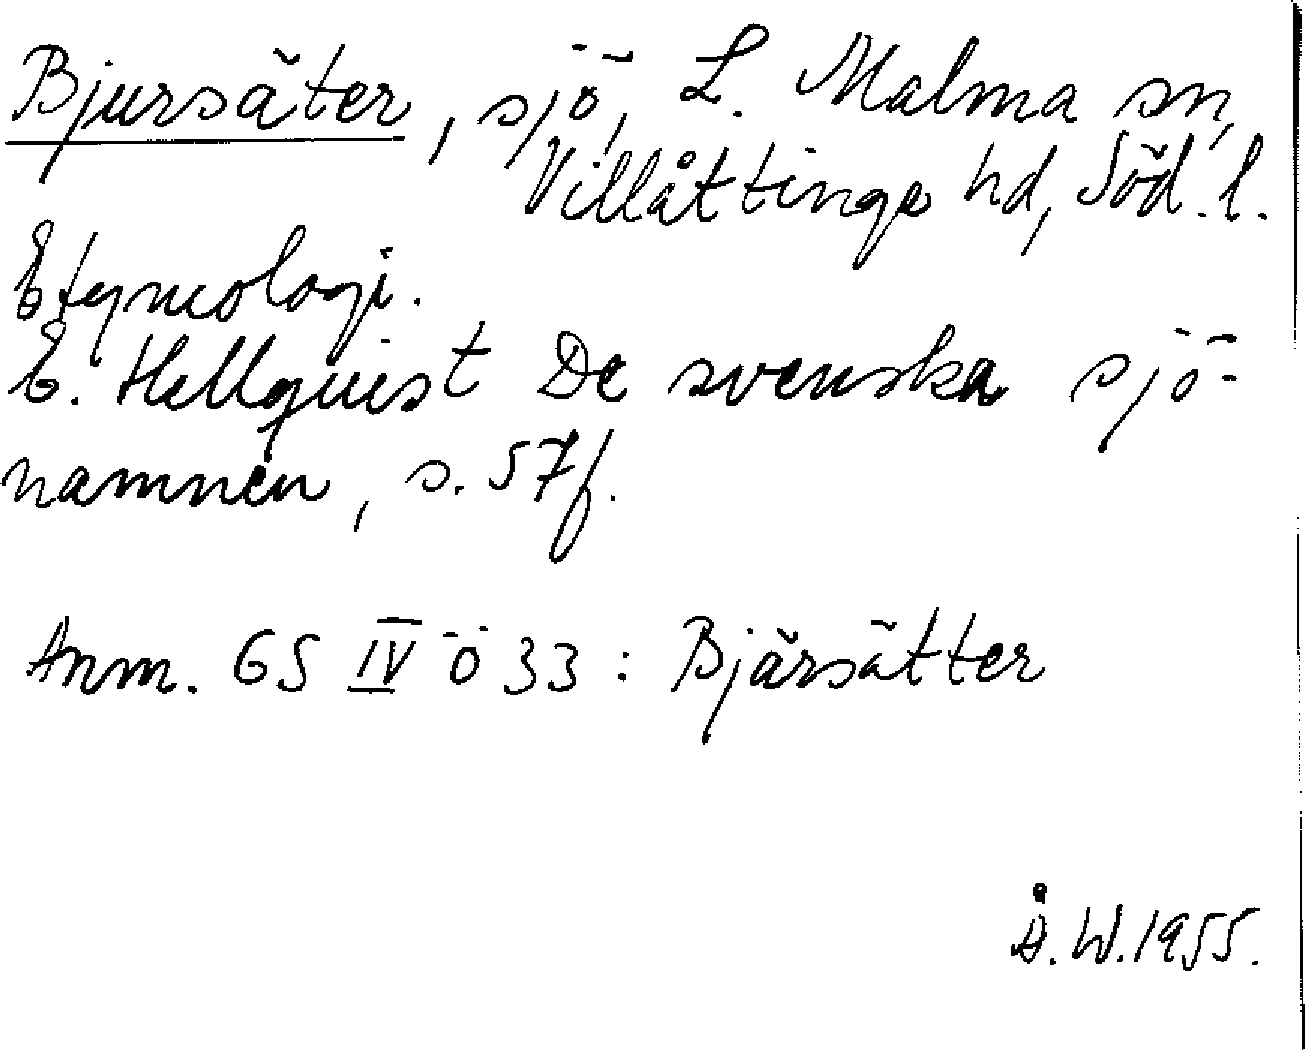 Bjursäter, sjö, L. Malma sn,
Villåttinge hd, Söd. l.
Etymologi.
E. Hellquist De svenska sjö-
namnen, s. 57f.
Anm. GS IV Ö 33 : Bjärsätter
Å. W. 1955.